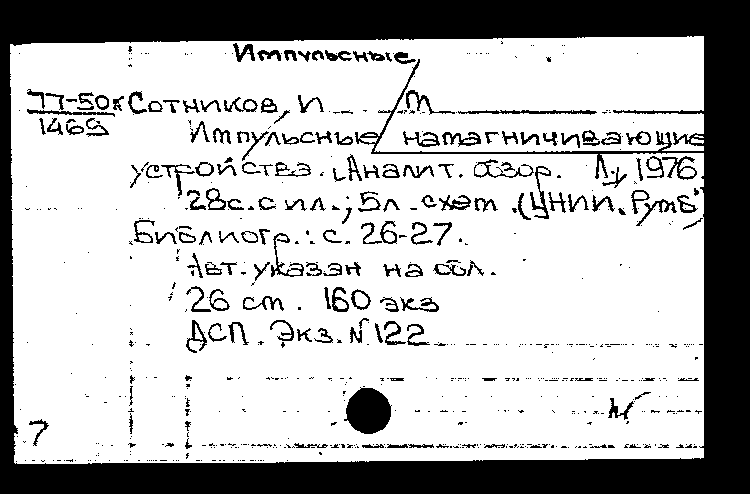 Импульсные
77-50к Сотников, И М
1469 Импульсные намагничивающие
устройства. Аналит. обзор. Л., 1976.
28с. с ил.; 5л. схем. (ЦНИИ. "Румб")
Библиогр.: с. 26-27.
Авт. указан на обл.
26 см. 160 экз
ДСП. Экз. N 122
7